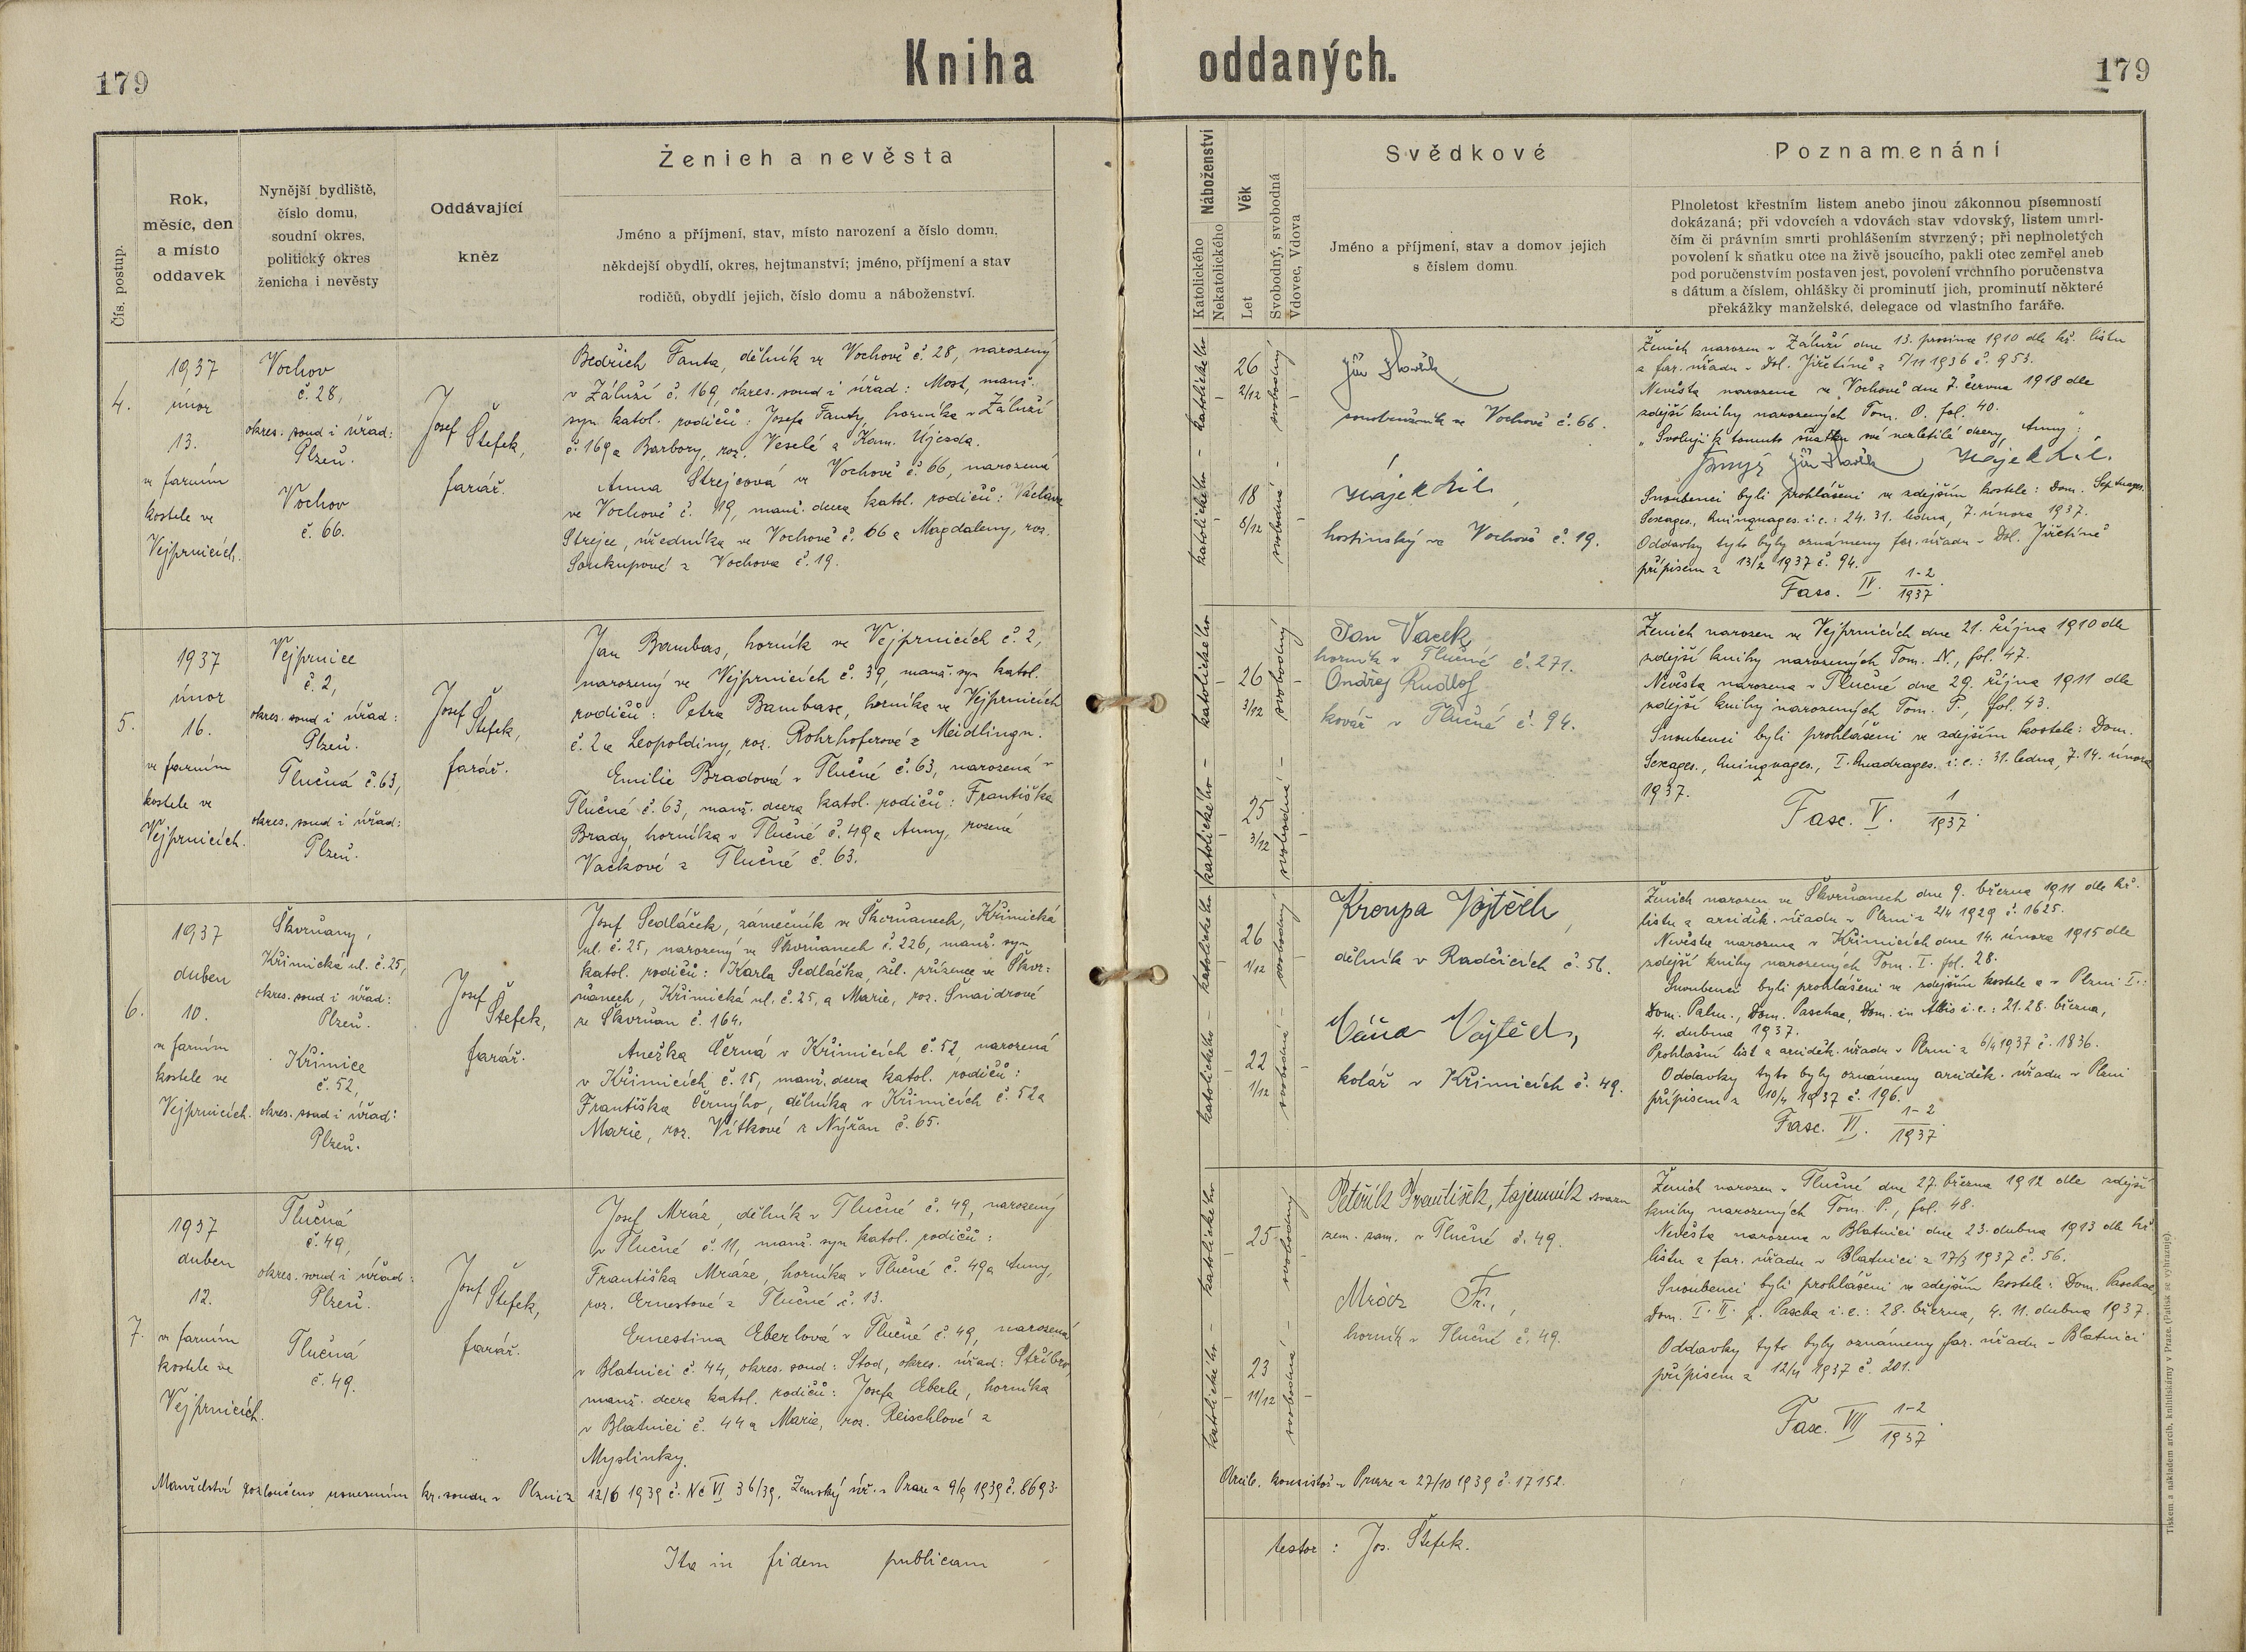 179
Kniha oddaných.
179
Čís. postup.
Rok,
měsíc, den
a místo
oddavek
Nynější bydliště,
číslo domu,
soudní okres,
politický okres
ženicha i nevěsty
Oddávající
kněz
Ženich a nevěsta
Jméno a příjmení, stav, místo narození a číslo domu,
někdejší obydlí, okres, hejtmanství; jméno, příjmení a stav
rodičů, obydlí jejich, číslo domu a náboženství.
Náboženství
Katolického
Nekatolického
Věk
Let
Svobodný, svobodná
Vdovec, Vdova
Svědkové
Jméno a příjmení, stav a domov jejich
s číslem domu
Poznamenání
Plnoletost křestním listem anebo jinou zákonnou písemností
dokázaná; při vdovcích a vdovách stav vdovský, listem umrl-
čím či právním smrti prohlášením stvrzený; při neplnoletých
povolení k sňatku otce na živě jsoucího, pakli otec zemřel aneb
pod poručenstvím postaven jest, povolení vrchního poručenstva
s dátum a číslem, ohlášky či prominutí jich, prominutí některé
překážky manželské, delegace od vlastního faráře.
4.
1937
únor
13.
ve farním
kostele ve
Vejprnicích.
Vochov
č. 28,
okres. soud i úřad:
Plzeň.
Vochov
č. 66.
Josef
Štefek,
farář.
Bedřich Fanta, dělník ve Vochově č. 28, narozený
v Záluží č. 169, okres. soud i úřad: Most, manž.
syn katol. rodičů: Josefa Fanty, horníka v Záluží
č. 169 a Barbory, roz. Veselé z Kam. Újezda.
Anna Strejcová ve Vochově č. 66, narozená
ve Vochově č. 19, manž. dcera katol. rodičů: Václava
Strejce, úředníka ve Vochově č. 66 a Magdaleny, roz.
Soukupové z Vochova č. 19.
katolického
katolického
26
2/12
18
8/12
svobodný
svobodná
Jiří
ve Vochově č. 66.
Hájek
hostinský ve Vochově č. 19.
Ženich narozen v Záluží dne 13. prosince 1910 dle kř. listu
z far. úřadu v Dol. Jiřetíně z 5/11 1936 č. 953.
Nevěsta narozena ve Vochově dne 7. června 1918 dle
zdejší knihy narozených Tom. O. fol. 40.
„Svoluji k tomuto sňatku své nezletilé dcery, Anny:"
Jiří Hájek
Snoubenci byli prohlášeni ve zdejším kostele: Dom. Septuages.
Sexages., Quinquages. i.e.: 24. 31. ledna, 7. února 1937.
Oddavky tyto byly oznámeny far. úřadu v Dol. Jiřetíně
přípisem z 13/2 1937 č. 94.
Fasc. IV. 1-2/1937.
5.
1937
únor
16.
ve farním
kostele ve
Vejprnicích.
Vejprnice
č. 2,
okres. soud i úřad:
Plzeň.
Tlučná č. 63,
okres. soud i úřad:
Plzeň.
Josef
Štefek,
farář.
Jan Bambas, horník ve Vejprnicích č. 2,
narozený ve Vejprnicích č. 39, manž. syn katol.
rodičů: Petra Bambase, horníka ve Vejprnicích
č. 2 a Leopoldiny, roz. Rohrhoferové z Meidlingu.
Emilie Bradová v Tlučné č. 63, narozená v
Tlučné č. 63, manž. dcera katol. rodičů: Františka
Brady, horníka v Tlučné č. 49 a Anny, rozené
Vackové z Tlučné č. 63.
katolického
katolického
26
3/12
25
3/12
svobodný
svobodná
Jan Vacek
horník v Tlučné č. 271.
Ondřej Rudlof
kovář v Tlučné č. 94.
Ženich narozen ve Vejprnicích dne 21. října 1910 dle
zdejší knihy narozených Tom. N., fol. 47.
Nevěsta narozena v Tlučné dne 29. října 1911 dle
zdejší knihy narozených Tom. P., fol. 43.
Snoubenci byli prohlášeni ve zdejším kostele: Dom.
Sexages., Quinquages., I. Quadrages. i.e.: 31. ledna, 7. 14. února
1937.
Fasc. V. 1/1937.
6.
1937
duben
10.
ve farním
kostele ve
Vejprnicích.
Škvrňany,
Křimická ul. č. 25,
okres. soud i úřad:
Plzeň.
Křimice
č. 52,
okres. soud i úřad:
Plzeň.
Josef
Štefek,
farář.
Josef Sedláček, zámečník ve Škvrňanech, Křimická
ul. č. 25, narozený ve Škvrňanech č. 226, manž. syn
katol. rodičů: Karla Sedláčka, žel. zřízence ve Škvr-
ňanech, Křimická ul. č. 25, a Marie, roz. Šnaidrové
ze Škvrňan č. 164.
Anežka Černá v Křimicích č. 52, narozená
v Křimicích č. 15, manž. dcera katol. rodičů:
Františka Černýho, dělníka v Křimicích č. 52 a
Marie, roz. Vítkové z Nýřan č. 65.
katolického
katolického
26
1/12
22
1/12
svobodný
svobodná
Kroupa Vojtěch,
dělník v Radčicích č. 56.
Váňa Vojtěch,
kolář v Křimicích č. 49.
Ženich narozen ve Škvrňanech dne 9. března 1911 dle kř.
listu z arciděk. úřadu v Plzni z 2/4 1929 č. 1625.
Nevěsta narozena v Křimicích dne 14. února 1915 dle
zdejší knihy narozených Tom. I. fol. 28.
Snoubenci byli prohlášeni ve zdejším kostele a v Plzni I.:
Dom. Palm., Dom. Paschae, Dom. in Albis i.e.: 21. 28. března,
4. dubna 1937.
Prohlašní list z arciděk. úřadu v Plzni z 6/4 1937 č. 1836.
Oddavky tyto byly oznámeny arciděk. úřadu v Plzni
přípisem z 10/4 1937 č. 196.
Fasc. VI. 1-2/1937.
7.
1937
duben
12.
ve farním
kostele ve
Vejprnicích.
Tlučná
č. 49,
okres. soud i úřad:
Plzeň.
Tlučná
č. 49.
Josef
Štefek,
farář.
Josef Mráz, dělník v Tlučné č. 49, narozený
v Tlučné č. 11, manž. syn katol. rodičů:
Františka Mráze, horníka v Tlučné č. 49 a Anny,
roz. Ernestové z Tlučné č. 13.
Ernestina Eberlová v Tlučné č. 49, narozená
v Blatnici č. 44, okres. soud: Stod, okres. úřad: Stříbro,
manž. dcera katol. rodičů: Josefa Eberle, horníka
v Blatnici č. 44 a Marie, roz. Reischlové z
Myslinky.
katolického
katolického
25
23
11/12
svobodný
svobodná
Peteřík František, tajemník svazu
zem. zam. v Tlučné č. 49.
Mráz Fr.,
horník v Tlučné č. 49.
Ženich narozen v Tlučné dne 27. března 1912 dle zdejší
knihy narozených Tom. P., fol. 48.
Nevěsta narozena v Blatnici dne 23. dubna 1913 dle kř.
listu z far. úřadu v Blatnici z 17/3 1937 č. 56.
Snoubenci byli prohlášeni ve zdejším kostele: Dom. Paschae,
Dom. I. II. p. Pascha i.e.: 28. března, 4. 11. dubna 1937.
Oddavky tyto byly oznámeny far. úřadu v Blatnici
přípisem z 12/4 1937 č. 201.
Fasc. VII 1-2/1937.
Manželství rozloučeno usnesením kr. soudu v Plzni z 12/6 1939 č. Nc VI 36/39. Zemský úř. v Praze z 9/9 1939 č. 8693.
Arcib. konsistoř v Praze z 27/10 1939 č. 17152.
Ita in fidem publicam
testor: Jos. Štefek.
Tiskem a nákladem arcib. knihtiskárny v Praze. (Patisk se vyhrazuje).